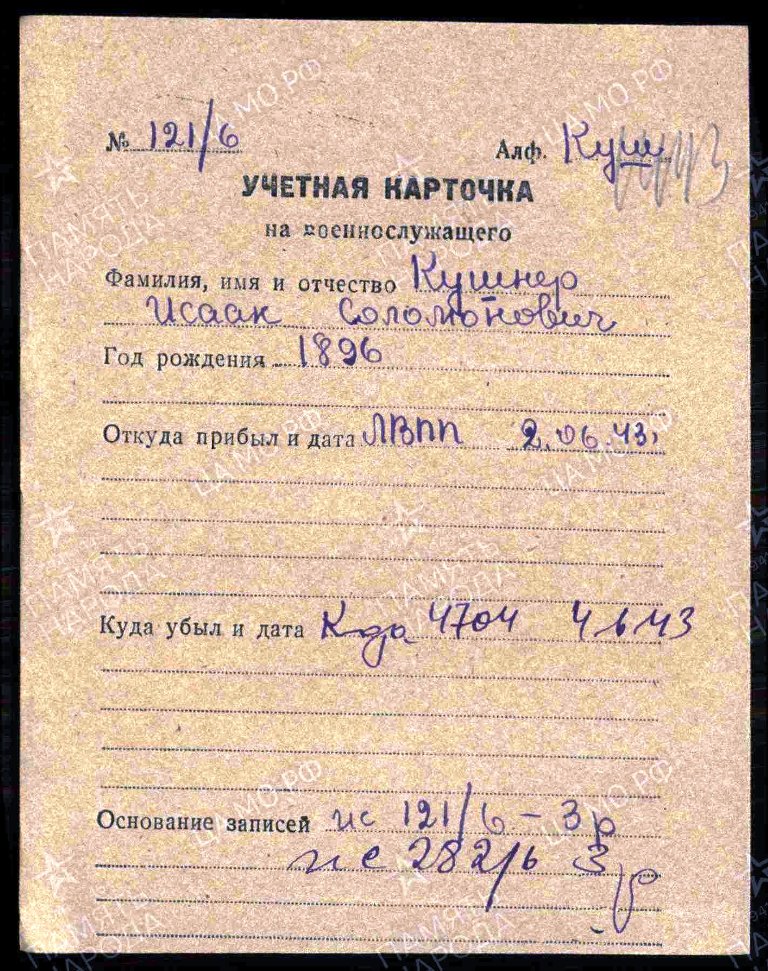 № 121/6 Алф. Куш
УЧЕТНАЯ КАРТОЧКА
на военнослужащего
Фамилия, имя и отчество Кушнер
Исаак Соломонович
Год рождения 1896
Откуда прибыл и дата ЛВПП 2.06.43
Куда убыл и дата 4704 4 6 43
Основание записей ис 121/6 - 3р
ис 282/6 3р
ПАМЯТЬ НАРОДА
ЦАМО.РФ